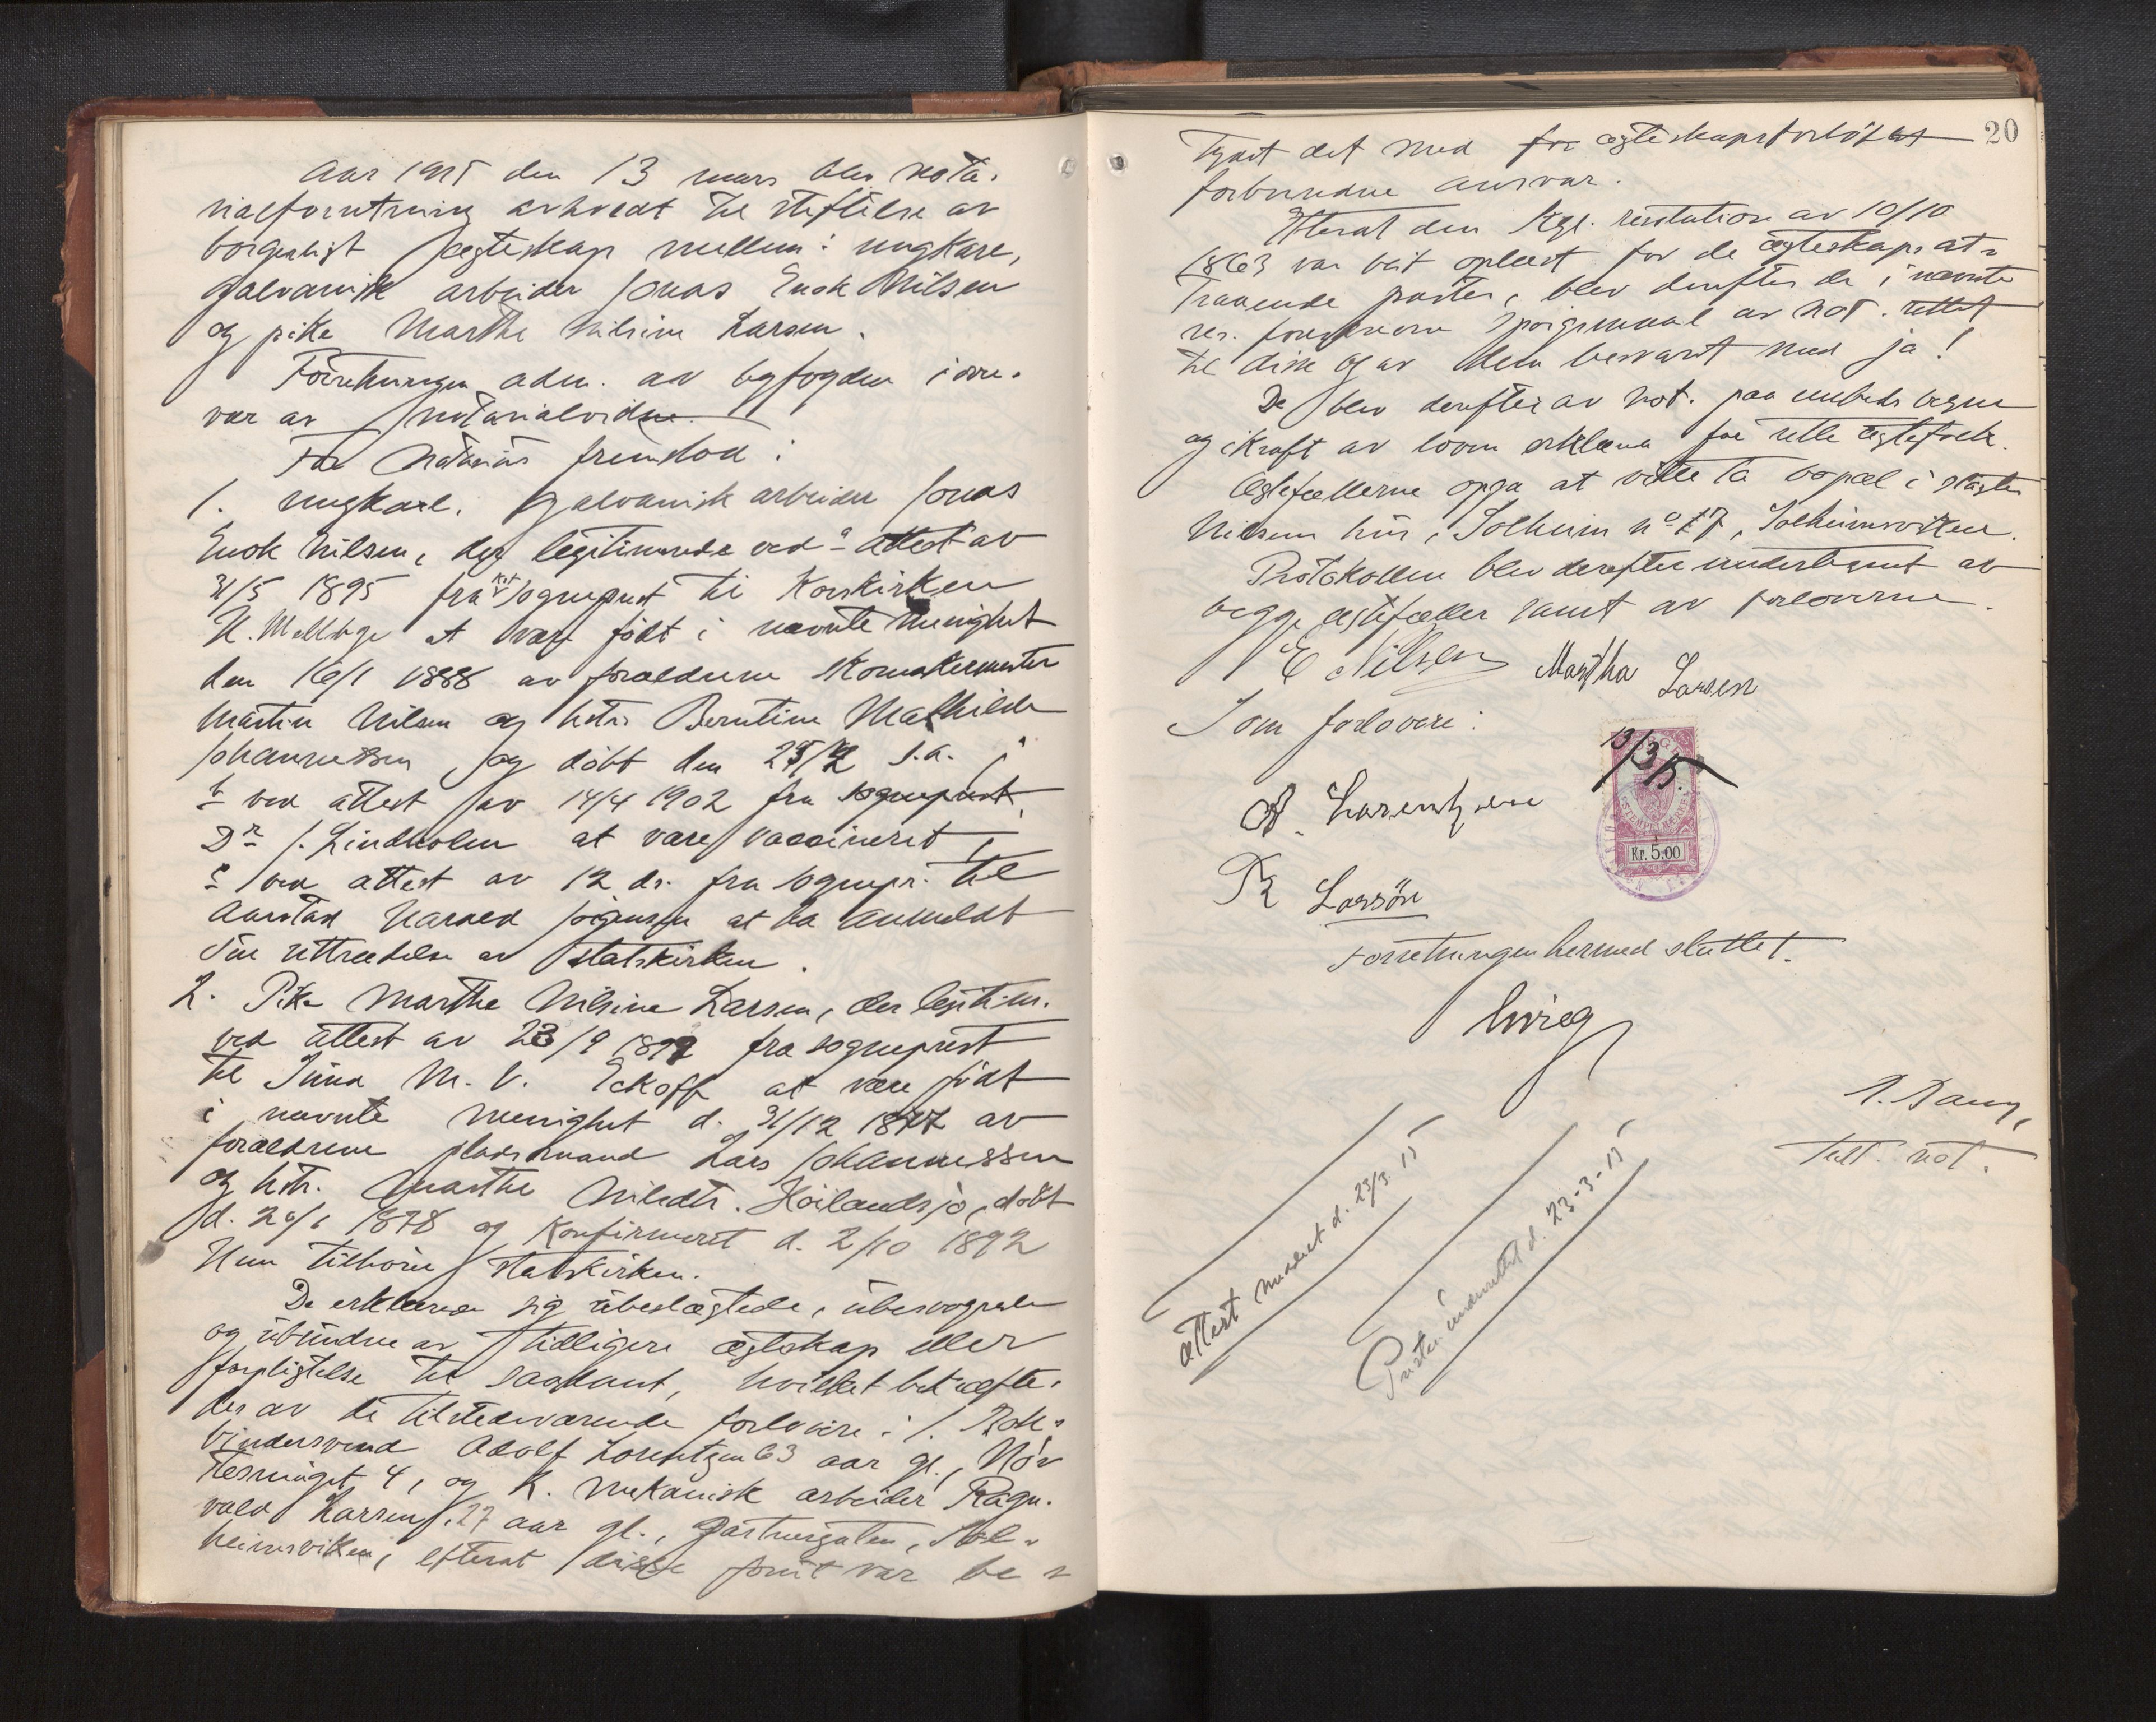 Aar 1915 den 13 mars blev nota-
rialforretning avholdt til stiftelse av
borgerligt egteskap mellem: ungkarl,
galvanisk arbeider Jonas Enok Nilsen
og pike Marthe Nilsine Larsen.
Forretningen adm. av byfogden i over-
vær av notarialvidne.
For Notarius fremstod:
1. ungkarl, galvanisk arbeider Jonas
Enok Nilsen, der legitimerede ved a attest av
31/5 1895 fra kst sogneprest til Korskirken
at være født i nævnte menighet
den 16/1 1888 av forældrene skomakermester
Martin Nilsen og hstr. Berntine Mathilde
Johannessen og døbt den s.a.
b ved attest av 14/4 1902 fra sogneprest
Dr J. Lindholm at være vaccineret,
c ved attest av 12 ds. fra sognepr. til
Aarstad Harald Jørgensen at ha anmeldt
sin uttrædelse av statskirken.
2. Pike Marthe Nilsine Larsen, der legitim.
ved attest av 23/9 fra sogneprest
til Sund M. V. Eckoff at være født
i nævnte menighet d. 31/12 1877 av
forældrene pladsmand Lars Johannessen
og hstr. Marthe Nilsdtr. Høilandsjø, døbt
d. 20/1 1878 og konfirmeret d. 2/10 1892
Hun tilhører statskirken.
De erklærede sig ubeslægtede, ubesvogrede
og ubundne av tidligere egteskap eller
forpligtelse til saadant, hvilket bekræfte-
des av de tilstedeværende forlovere: 1. Bok-
bindersvend Adolf Lorentzen 63 aar gl., Nør
4, og 2. mekanisk arbeider Ragn-
vald Larsen, 27 aar gl., Gartnergaten, Sol-
heimsviken, efterat disse forut var be-
20
tydet det med for egteskapsforløftet
forbundne ansvar.
Efterat den kgl. resolution av 10/10
1863 var blit oplæst for de egteskapsat-
traaende parter, blev derefter de i nævnte
res. foreskrevne spørgsmaal av not. rettet
til disse og av dem besvaret med ja!
De blev derefter av not. paa embeds vegne
og i kraft av loven erklæret for rette egtefolk.
Egtefællerne opga at ville ta bopæl i
Nilsens hus, Solheim no 17, Solheimsviken.
Protokollen blev derefter underskrevet av
begge egtefæller samt av forloverne.
E Nilsen Martha Larsen
Som forlovere:
A. Lorentzen
R Larsen
13/3 15.
STEMPELMÆRKE
Kr. 5.00
Forretningen hermed sluttet.
Grieg
tilt. not.
Attest meddelt d. 23/3 15
Presten underrettet d. 23-3-15